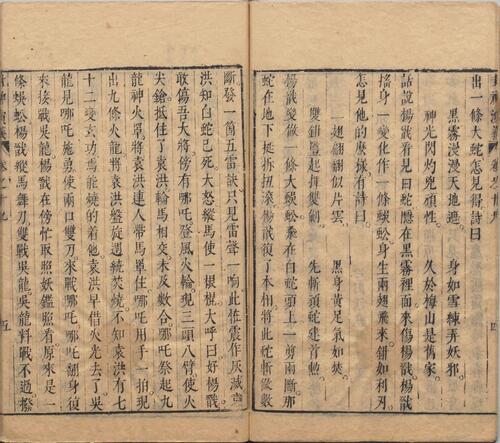 出一條大蛇怎見得詩曰
黑霧漫漫天地遮 身如雪練弄妖邪
神光閃灼兇頑性 久於梅山是舊家
話說楊戩看見白蛇隱在黑霧裡面來傷楊戩楊戩
搖身一變化作一條蜈蚣身生兩翅飛來鉗如利刃
怎見他的麼樣有詩曰
二翅翩翩似片雲 黑身黃足氣如焚
雙鉗竪起揮雙劒 先斬頑蛇建首勲
楊戩變做一條大蜈蚣乗在白蛇頭上一剪兩斷那
蛇在地下挺拆扭滾楊戩復了本相將此蛇斬做數
斷發一箇五雷訣只見雷聲一响此怪震作灰滅袁
洪知白蛇已死大怒縱馬使一根棍大呼曰好楊戩
敢傷吾大將傍有哪吒登風火輪現三頭八臂使火
尖鎗抵住了袁洪輪馬相交未及數合哪吒祭起九
龍神火罩將袁洪連人帶馬罩住哪吒用手一拍現
出九條火龍將袁洪盤旋週繞焚燒不知袁洪有七
十二變玄功焉能燒的着他袁洪早借火光去了吳
龍見哪吒施勇使兩口雙刀來戰哪吒哪吒翻身復
來接戰吳龍楊戩在傍忙取照妖鑑照看原來是一
條蜈蚣楊戩縱馬舞刀雙戰吳龍吳龍料戰不過撥
卷之十九 五